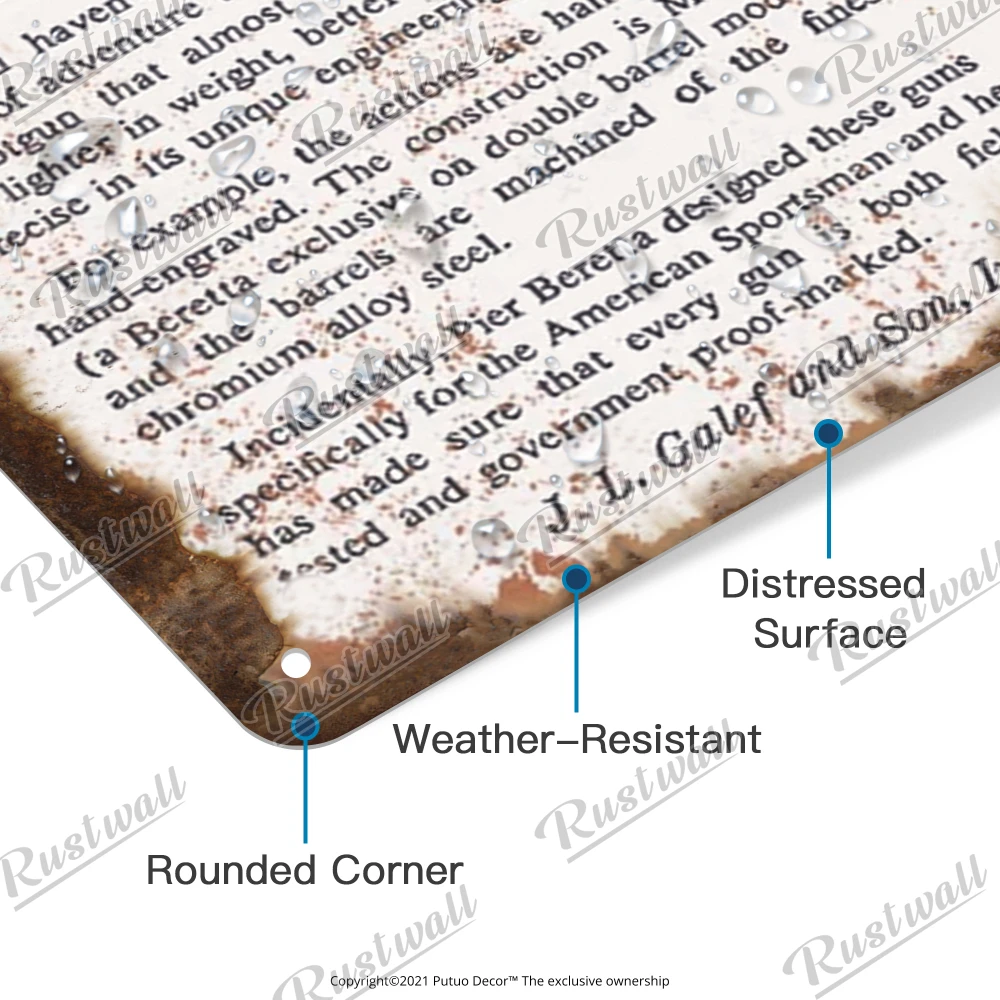 haven
of adventure
shotgun that almost
lighter in weight, better
precise in its unique engineering
For example, the actions are hand
hand-engraved. The construction is M
(a Beretta exclusive on double barrel mod
and the barrels are machined of the fines
chromium alloy steel.
Incidentally, Pier Beretta designed these guns
specifically for the American Sportsman and he
has made sure that every gun is both fiel
tested and government proof-marked.
J. L. Galef and Son, In
Distressed
Surface
Weather-Resistant
Rounded Corner
Rustwall
Rustwall
Rustwall
Rustwall
Rustwall
Rustwall
Rustwall
Rustwall
Rustwall
Rustwall
Rustwall
Rustwall
Rustwall
Rustwall
Copyright©2021 Putuo Decor™ The exclusive ownership